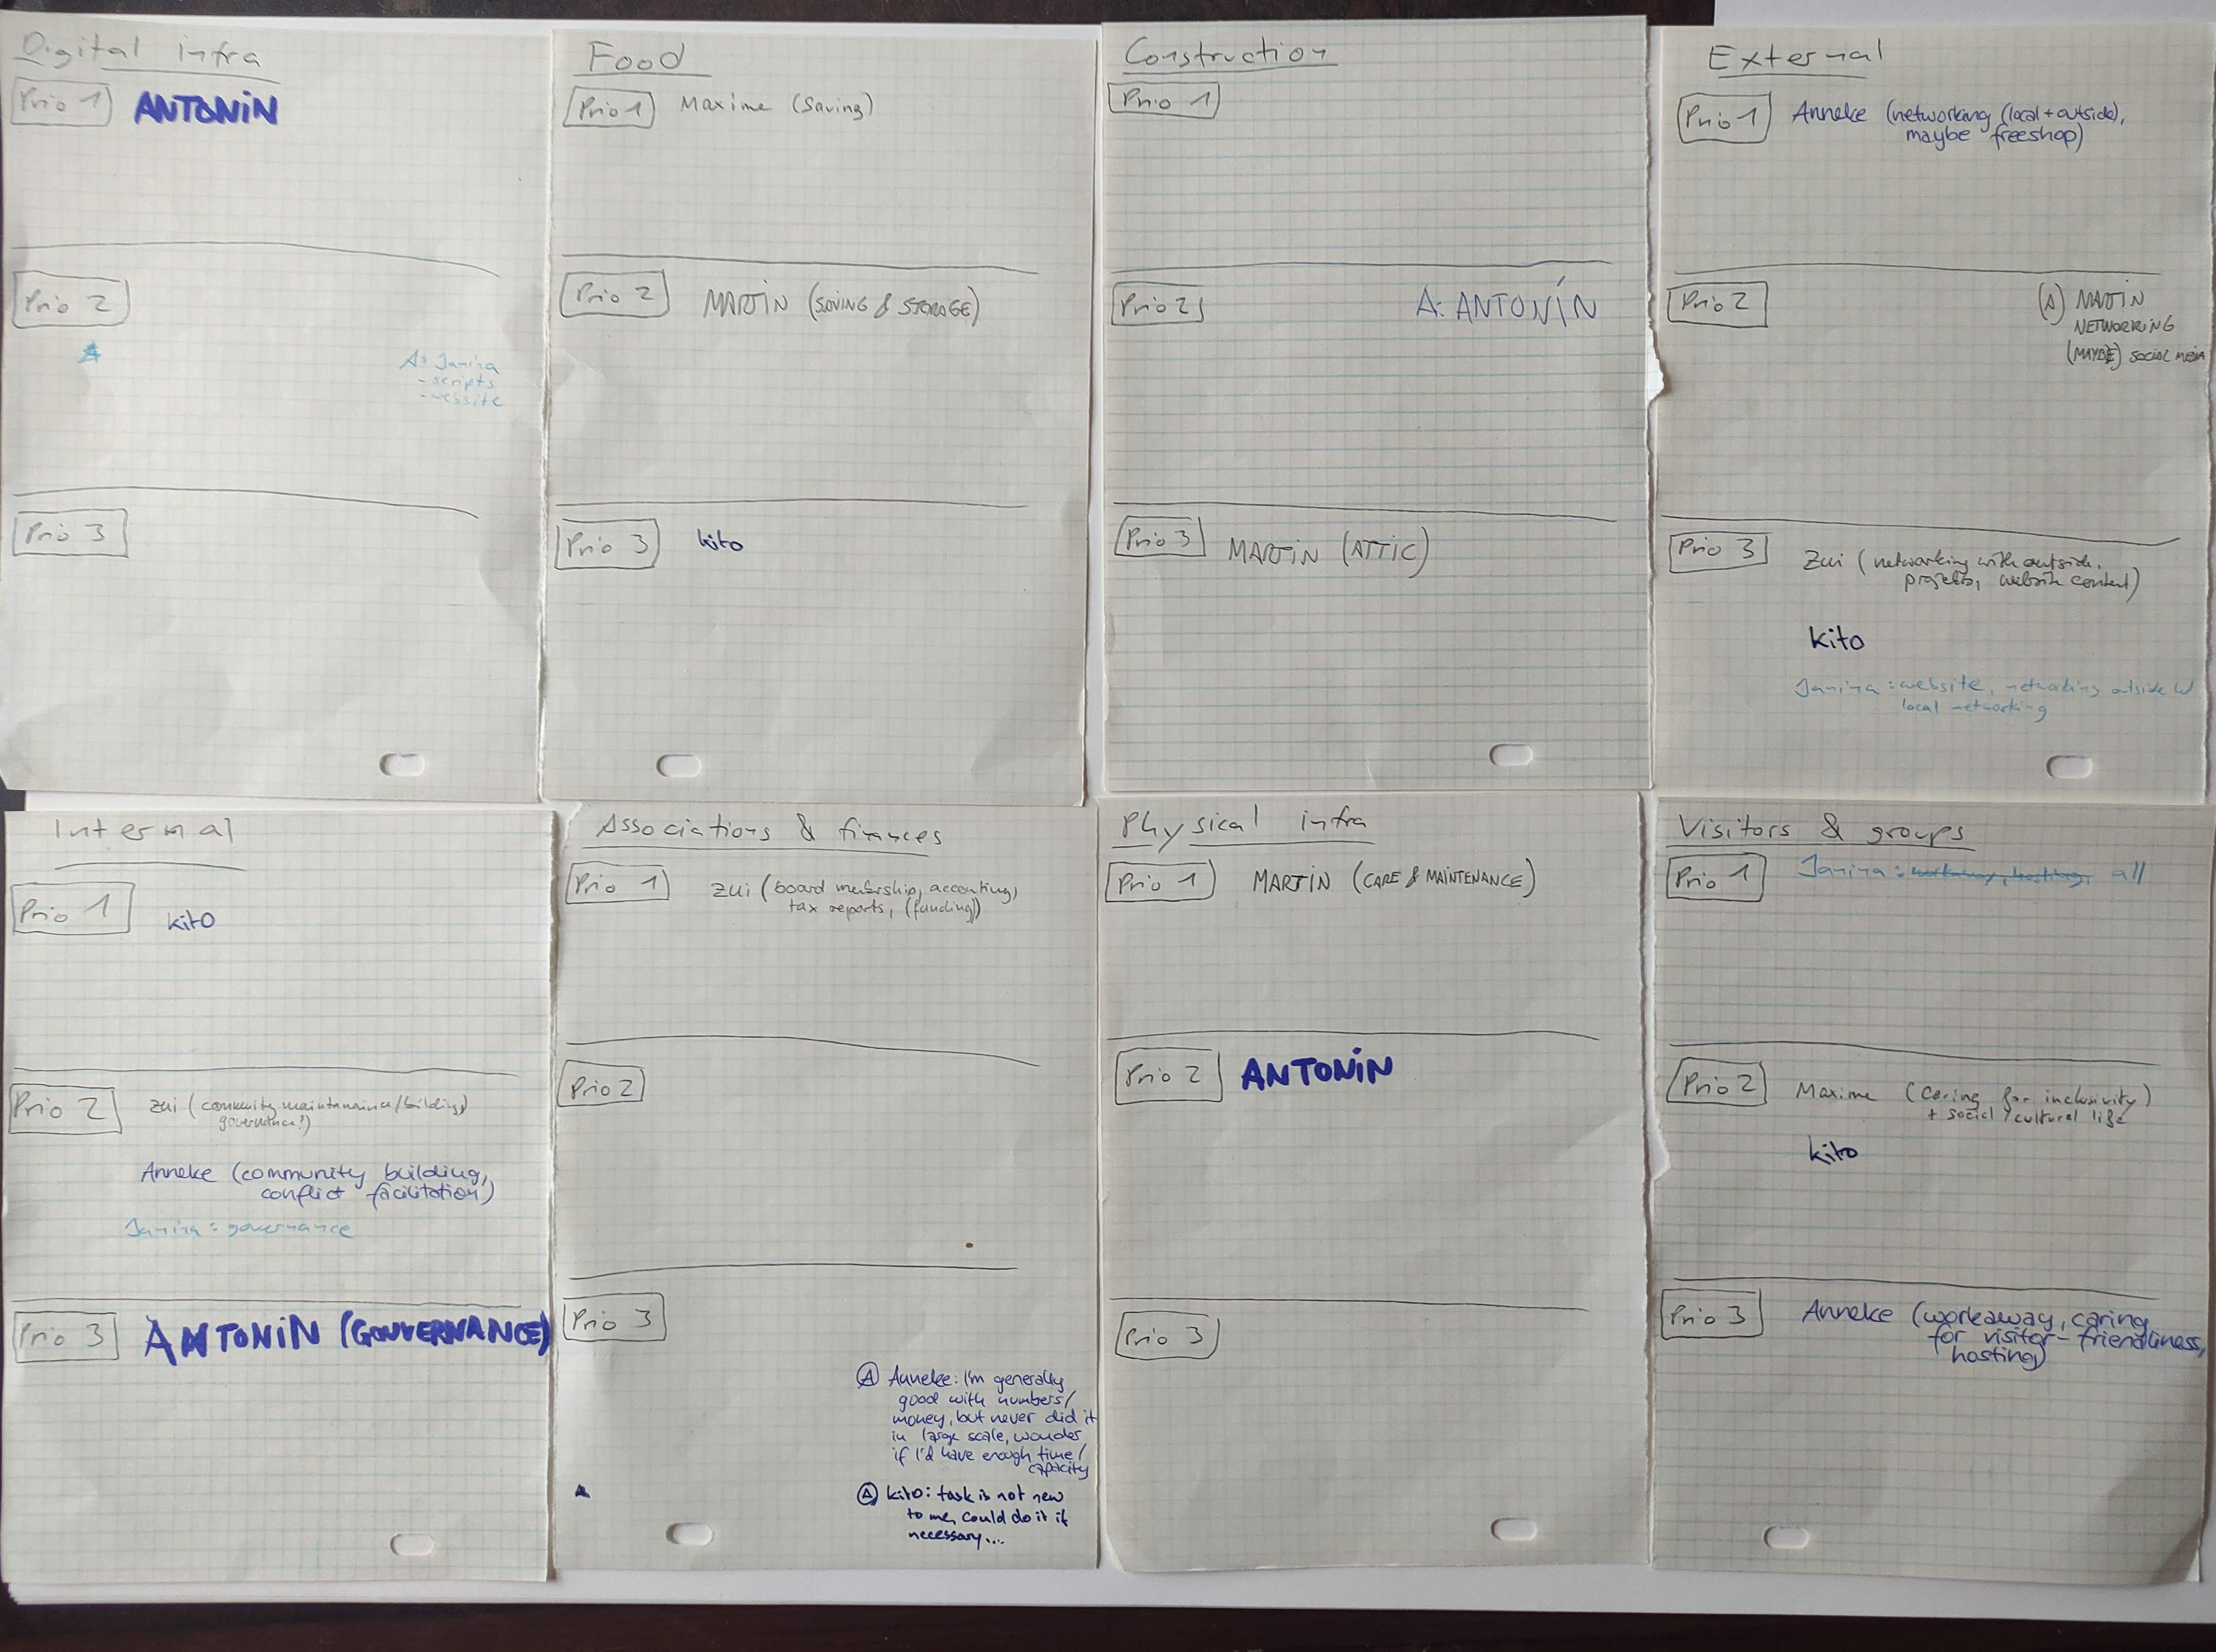 Digital infra
Prio 1 ANTONiN
Prio 2
A: Janina
- scripts
- website
Prio 3
Food
Prio 1 Maxime (Saving)
Prio 2 MARTiN (SAVING & STORAGE)
Prio 3 kito
Construction
Prio 1
Prio 2 A: ANTONÍN
Prio 3 MARTiN (ATTIC)
External
Prio 1 Anneke (networking (local + outside),
maybe freeshop)
Prio 2 (A) MARTiN
NETWORKING
(MAYBE) SOCIAL MEDIA
Prio 3 Zui (networking with outside.
projects, website content)
kito
Janina : website, networking outside
local networking
Internal
Prio 1 kito
Prio 2 Zui (community maintanaince/building)
governance!)
Anneke (community building,
conflict facilitation)
Janina : governance
Prio 3 ANTONiN (GOUVERNANCE)
Associations & finances
Prio 1 Zui (board membership, accounting,
tax reports, (funding))
Prio 2
Prio 3
(A) Anneke: I'm generally
good with numbers/
money, but never did it
in large scale, wonder
if I'd have enough time/
capacity
(A) kito: task is not new
to me, could do it if
necessary...
Physical infra
Prio 1 MARTiN (CARE & MAINTENANCE)
Prio 2 ANTONiN
Prio 3
Visitors & groups
Prio 1 Janina : all
Prio 2 Maxime (Caring for inclusivity)
+ social / cultural life
kito
Prio 3 Anneke (workaway, caring
for visitor-friendliness,
hosting)